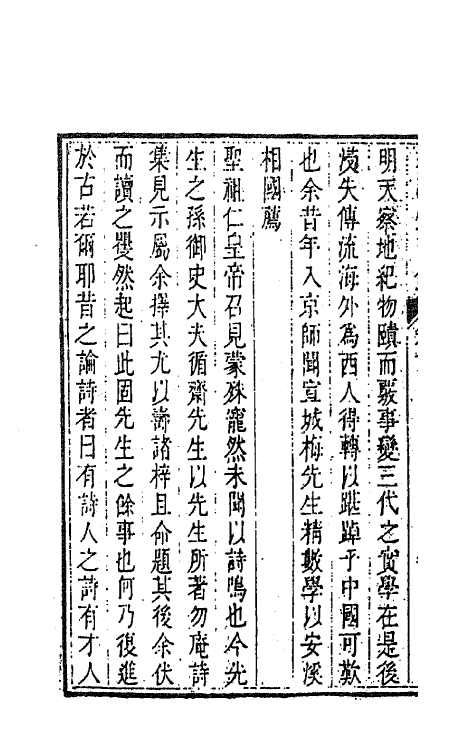 明天察地紀物賾而覈事變三代之實學在是後
浸失傳流海外爲西人得轉以踸踔乎中國可歎
也余昔年入京師聞宣城梅先生精數學以安溪
相國薦
聖祖仁皇帝召見蒙殊寵然未聞以詩鳴也今先
生之孫御史大夫循齋先生以先生所著勿庵詩
集見示屬余擇其尤以壽諸梓且命題其後余伏
而讀之矍然起曰此固先生之餘事也何乃復進
於古若爾耶昔之論詩者曰有詩人之詩有才人